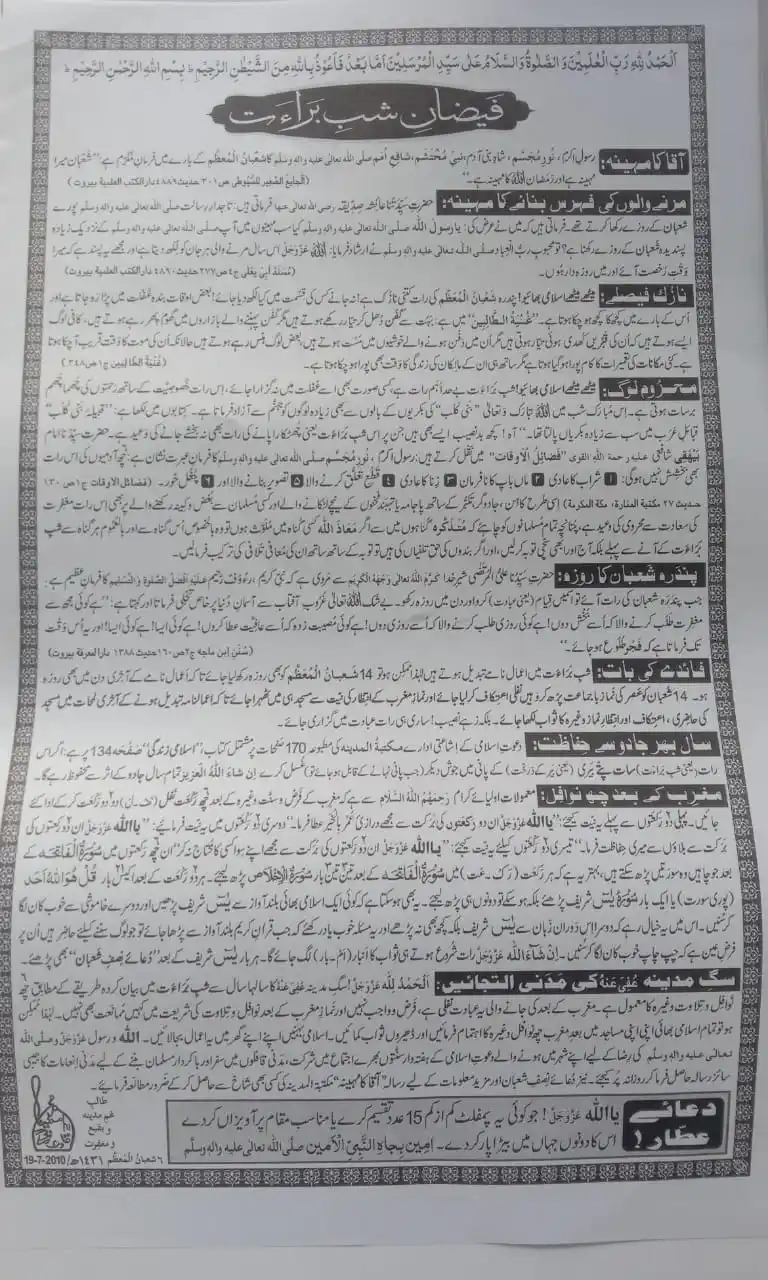 اَلْحَمْدُ لِلّٰہِ رَبِّ الْعٰلَمِیْنَ وَالصَّلٰوۃُ وَالسَّلَامُ عَلٰی سَیِّدِ الْمُرْسَلِیْنَ اَمَّا بَعْدُ فَاَعُوْذُ بِاللّٰہِ مِنَ الشَّیْطٰنِ الرَّجِیْمِ ط بِسْمِ اللّٰہِ الرَّحْمٰنِ الرَّحِیْمِ ط
فیضانِ شبِ براءَت
آقا کا مہینہ: رسولِ اکرم، نورِ مُجَسَّم، شاہِ بنی آدم، نبیِّ مُحْتَشَم، شافعِ اُمَم صلی اللہ تعالٰی علیہ والہٖ وسلم کا شعبانُ الْمُعَظَّم کے بارے میں فرمانِ مکرم ہے: "شعبان میرا
مہینہ ہے اور رَمَضان اللہ کا مہینہ ہے۔" (الجامع الصغیر للسُّیوطی ص۳۰۱ حدیث ۴۸۸۹ دار الکتب العلمیة بیروت)
مرنے والوں کی فہرس بنانے کا مہینہ: حضرتِ سیِّدَتُنا عائشہ صدیقہ رضی اللہ تعالی عنہا فرماتی ہیں: تاجدارِ رسالت صلی اللہ تعالٰی علیہ والہٖ وسلم پورے
شعبان کے روزے رکھا کرتے تھے۔ فرماتی ہیں کہ میں نے عرض کی: یا رسول اللہ صلی اللہ تعالٰی علیہ والہٖ وسلم کیا سب مہینوں میں آپ صلی اللہ تعالٰی علیہ والہٖ وسلم کے نزدیک زیادہ
پسندیدہ شعبان کے روزے رکھنا ہے؟ تو محبوبِ ربُّ العِباد صلی اللہ تعالٰی علیہ والہٖ وسلم نے ارشاد فرمایا: اللہ عَزَّوَجَلَّ اس سال مرنے والی ہر جان کو لکھ دیتا ہے اور مجھے یہ پسند ہے کہ میرا
وقتِ رُخصت آئے اور میں روزہ دار ہوں۔ (مُسْنَد اَبِی یَعْلٰی ج۴ ص۲۷۷ حدیث ۴۸۹۰ دار الکتب العلمیة بیروت)
نازُک فیصلے: میٹھے میٹھے اسلامی بھائیو! پندرہ شَعْبانُ الْمُعَظَّم کی رات کتنی نازُک ہے! نہ جانے کس کی قسمت میں کیا لکھ دیا جائے! بعض اوقات بندہ غفلت میں پڑا رہ جاتا ہے اور
اُس کے بارے میں کچھ کا کچھ ہو چکا ہوتا ہے۔ "غُنْیَۃُ الطّالِبین" میں ہے: بہت سے کفن دُھل کر تیار رکھے ہوتے ہیں مگر کفن پہننے والے بازاروں میں گھوم پھر رہے ہوتے ہیں، کافی لوگ
ایسے ہوتے ہیں کہ اُن کی قبریں کھدی ہوئی تیار ہوتی ہیں مگر اُن میں دفن ہونے والے خوشیوں میں مست ہوتے ہیں، بعض لوگ ہنس رہے ہوتے ہیں حالانکہ اُن کی موت کا وقت قریب آ چکا ہوتا
ہے۔ کئی مکانات کی تعمیرات کا کام پورا ہو گیا ہوتا ہے مگر ساتھ ہی ان کے مالکان کی زندگی کا وقت بھی پورا ہو چکا ہوتا ہے۔ (غُنْیَۃُ الطّالبین ج۱ ص۳۴۸)
محروم لوگ: میٹھے میٹھے اسلامی بھائیو! شبِ براءَت بے حد اہم رات ہے، کسی صورت بھی اسے غفلت میں نہ گزارا جائے، اس رات خصوصیت کے ساتھ رحمتوں کی چھما چھم
برسات ہوتی ہے۔ اس مبارک شب میں اللہ تبارک وتعالٰی "بنی کلب" کی بکریوں کے بالوں سے بھی زیادہ لوگوں کو جہنم سے آزاد فرماتا ہے۔ کتابوں میں لکھا ہے: "قبیلۂ بنی کلب"
قبائلِ عرب میں سب سے زیادہ بکریاں پالتا تھا۔" آہ! کچھ بدنصیب ایسے بھی ہیں جن پر اس شبِ براءَت یعنی چھٹکارا پانے کی رات بھی نہ بخشے جانے کی وعید ہے۔ حضرتِ سیِّدُنا امام
بَیْہَقی شافعی علیہ رحمۃ اللہ القوی "فَضائِلُ الْاَوْقات" میں نقل کرتے ہیں: رسولِ اکرم، نورِ مُجَسَّم صلی اللہ تعالٰی علیہ والہٖ وسلم کا فرمانِ عبرت نشان ہے: چھ آدمیوں کی اس رات
بھی بخشش نہیں ہوگی: 1 شراب کا عادی 2 ماں باپ کا نافرمان 3 زنا کا عادی 4 قَطْعِ تعلق کرنے والا 5 تصویر بنانے والا اور 6 چغل خور۔ (فضائل الاوقات ج۱ ص۱۳۰
حدیث ۲۷ مکتبة المنارة، مکة المکرمة) اِسی طرح کاہن، جادوگر، تکبُّر کے ساتھ پاجامہ یا تہبند ٹخنوں کے نیچے لٹکانے والے اور کسی مسلمان سے بغض و کینہ رکھنے والے پر بھی اس رات مغفرت
کی سعادت سے محرومی کی وعید ہے، چنانچہ تمام مسلمانوں کو چاہئے کہ مذکورہ گناہوں میں سے اگر مَعَاذَ اللہ کسی گناہ میں ملوث ہوں تو وہ بالخصوص اُس گناہ سے اور بالعموم ہر گناہ سے شبِ
براءَت کے آنے سے پہلے بلکہ آج اور ابھی سچی توبہ کرلیں، اور اگر بندوں کی حق تلفیاں کی ہیں تو توبہ کے ساتھ ساتھ ان کی مُعافی تلافی کی ترکیب فرمالیں۔
پندرہ شعبان کا روزہ: حضرتِ سیِّدُنا علیُّ المُرتضٰی شیرِ خدا کَرَّمَ اللہُ تعالٰی وَجْہَہُ الْکَرِیْم سے مروی ہے کہ نبیِّ کریم، رءُوفٌ رَّحیم علیہ افضل الصلوۃ والتسلیم کا فرمانِ عظیم ہے:
جب پندرہ شعبان کی رات آئے تو اُس میں قیام (یعنی عبادت) کرو اور دن میں روزہ رکھو۔ بے شک اللہ تعالٰی غروبِ آفتاب سے آسمانِ دُنیا پر خاص تجلّی فرماتا اور کہتا ہے: "ہے کوئی مجھ سے
مغفرت طلب کرنے والا کہ اُسے بخش دوں! ہے کوئی روزی طلب کرنے والا کہ اُسے روزی دوں! ہے کوئی مصیبت زدہ کہ اُسے عافیت عطا کروں! ہے کوئی ایسا! ہے کوئی ایسا! اور یہ اُس وقت
تک فرماتا ہے کہ فجر طلوع ہو جائے۔" (سُنَنِ ابن ماجہ ج۲ ص۱۶۰ حدیث ۱۳۸۸ دار المعرفة بیروت)
فائدے کی بات: شبِ براءَت میں اعمال نامے تبدیل ہوتے ہیں لہٰذا ممکن ہو تو 14 شَعْبانُ الْمُعَظَّم کو بھی روزہ رکھ لیا جائے تاکہ اعمال نامے کے آخری دن میں بھی روزہ
ہو۔ 14 شعبان کو عصر کی نماز باجماعت پڑھ کر وہیں نفلی اعتکاف کر لیا جائے اور نمازِ مغرب کے انتظار کی نیت سے مسجد ہی میں ٹھہرا جائے تاکہ اعمالنامہ تبدیل ہونے کے آخری لمحات میں مسجد
کی حاضِری، اعتکاف اور انتظارِ نماز وغیرہ کا ثواب لکھا جائے۔ بلکہ زہے نصیب! ساری ہی رات عبادت میں گزاری جائے۔
سال بھر جادو سے حفاظت: دعوتِ اسلامی کے اِشاعتی ادارے مکتبۃ المدینہ کی مطبوعہ 170 صفحات پر مشتمل کتاب، "اسلامی زندگی" صَفْحَہ 134 پر ہے: اگر اس
رات (یعنی شبِ براءت) سات پتے بیری (یعنی بیر کے درخت) کے پانی میں جوش دیکر (جب پانی نہانے کے قابل ہو جائے تو) غسل کرے اِنْ شَاءَ اللہُ العزیز تمام سال جادو کے اثر سے محفوظ رہے گا۔
مغرب کے بعد چھ نوافل: معمولاتِ اولیائے کرام رَحِمَہُمُ اللہُ السَّلام سے ہے کہ مغرب کے فرض و سنت وغیرہ کے بعد چھ رَکْعَت نفل (نَفْ۔ل) دو دو رَکْعَت کر کے ادا کئے
جائیں۔ پہلی دو رَکْعتوں سے پہلے یہ نیت کیجئے: "یا اللہ عَزَّوَجَلَّ ان دو رَکْعتوں کی بَرَکت سے مجھے درازیِ عُمر بالخیر عطا فرما۔" دوسری دو رَکْعتوں میں یہ نیت فرمایئے: "یا اللہ عَزَّوَجَلَّ ان دو رَکْعتوں کی
بَرَکت سے بلاؤں سے میری حفاظت فرما۔" تیسری دو رَکْعتوں کیلئے یہ نیت کیجئے: "یا اللہ عَزَّوَجَلَّ ان دو رَکْعتوں کی بَرَکت سے مجھے اپنے سوا کسی کا محتاج نہ کر" ان چھ رَکْعتوں میں سُوْرَۃُ الْفَاتِحَہ کے
بعد جو چاہیں وہ سورَتیں پڑھ سکتے ہیں، بہتر یہ ہے کہ ہر رَکْعَت (رَک۔عَت) میں سُوْرَۃُ الْفَاتِحَہ کے بعد تین تین بار سُوْرَۃُ الْاِخْلَاص پڑھ لیجئے۔ ہر دو رَکْعت کے بعد اکیس بار قُلْ ھُوَ اللّٰہُ اَحَد
(پوری سورت) یا ایک بار سُوْرَۂ یٰسٓ شریف پڑھئے بلکہ ہو سکے تو دونوں ہی پڑھ لیجئے۔ یہ بھی ہو سکتا ہے کہ کوئی ایک اسلامی بھائی بلند آواز سے یٰسٓ شریف پڑھیں اور دوسرے خاموشی سے خوب کان لگا
کر سنیں۔ اس میں یہ خیال رہے کہ دوسرا اس دَوران زبان سے یٰسٓ شریف بلکہ کچھ بھی نہ پڑھے اور یہ مسئلہ خوب یاد رکھئے کہ جب قراٰنِ کریم بلند آواز سے پڑھا جائے تو جو لوگ سننے کیلئے حاضر ہیں اُن پر
فرضِ عین ہے کہ چپ چاپ خوب کان لگا کر سنیں۔ اِنْ شَاءَ اللہ عَزَّوَجَلَّ رات شروع ہوتے ہی ثواب کا اَنبار (اَم۔بار) لگ جائے گا۔ ہر بار یٰسٓ شریف کے بعد "دُعائے نصفِ شَعْبان" بھی پڑھئے۔
سگِ مدینہ عُفِیَ عَنْہُ کی مَدَنی التجائیں: اَلْحَمْدُ لِلّٰہِ عَزَّوَجَلَّ! سگِ مدینہ عُفِیَ عَنْہُ کا سالہا سال سے شبِ براءَت میں بیان کردہ طریقے کے مطابق چھ
نوافل و تلاوت وغیرہ کا معمول ہے۔ مغرب کے بعد کی جانے والی یہ عبادت نفلی ہے، فرض و واجب نہیں اور نمازِ مغرب کے بعد نوافل و تلاوت کی شریعت میں کہیں ممانعت بھی نہیں۔ لہٰذا ممکن
ہو تو تمام اسلامی بھائی اپنی اپنی مساجد میں بعدِ مغرب چھ نوافل وغیرہ کا اہتمام فرمائیں اور ڈھیروں ثواب کمائیں۔ اسلامی بہنیں اپنے اپنے گھر میں یہ اعمال بجالائیں۔ اللہ و رسول عَزَّوَجَلَّ وصلی اللہ
تعالٰی علیہ والہ وسلم کی رضا کے لیے اپنے شہر میں ہونے والے دعوتِ اسلامی کے ہفتہ وار سنتوں بھرے اجتماع میں شرکت، مَدَنی قافلوں میں سفر اور باکردار مسلمان بننے کے لیے مَدَنی اِنعامات کا جیبی
سائز رسالہ حاصل فرما کر روزانہ پُر کیجئے۔ نیز دُعائے نصفِ شعبان اور مزید معلومات کے لیے رسالہ "آقا کا مہینہ" مکتبۃ المدینہ کی کسی بھی شاخ سے حاصل کر کے ضرور مطالعہ فرمایئے۔
دعائے عطّار! یا اللہ عَزَّوَجَلَّ! جو کوئی یہ پمفلٹ کم از کم 15 عدد تقسیم کرے یا مناسب مقام پر آویزاں کر دے
اس کا دونوں جہاں میں بیڑا پار کر دے۔ اٰمین بِجاہِ النَّبِیِّ الْاَمین صلی اللہ تعالٰی علیہ والہٖ وسلم
طالبِ
غمِ مدینہ
و بقیع
و مغفرت
۶ شعبان المعظم ۱۴۳۱ھ/ 19-7-2010